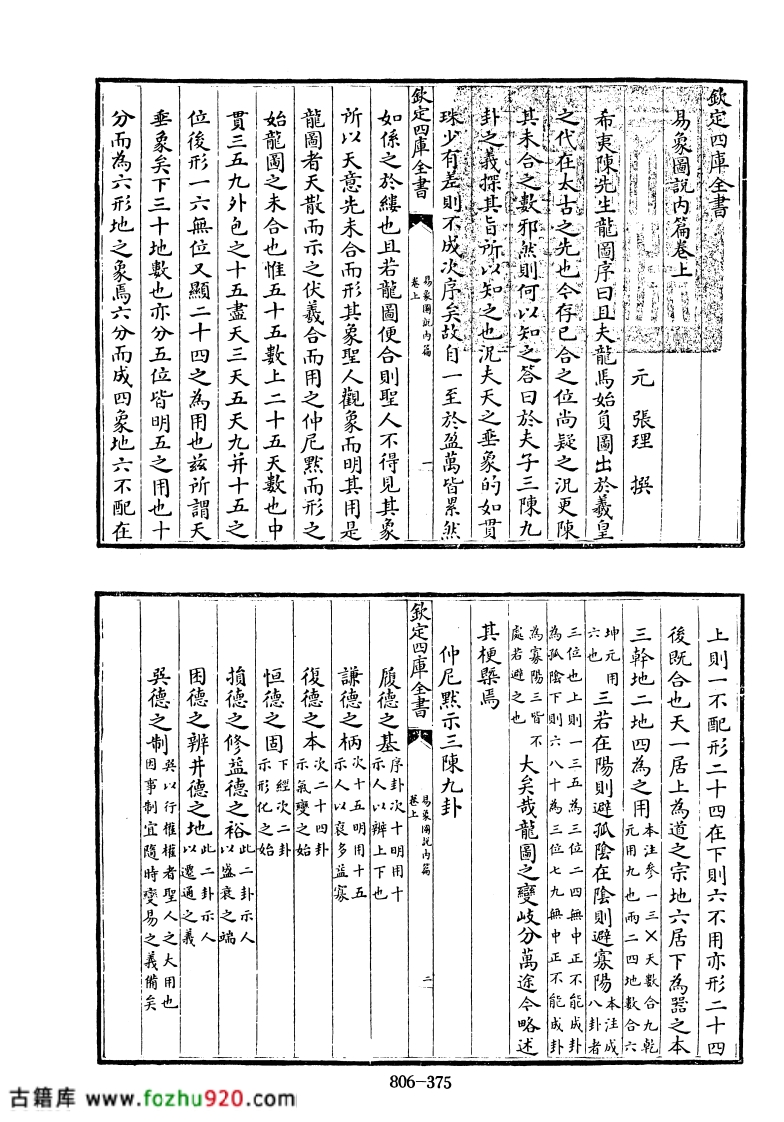 欽定四庫全書
易象圖說内篇卷上
元 張理 撰
希夷陳先生龍圖序曰且夫龍馬始負圖出於羲皇
之代在太古之先也今存已合之位尚疑之況更陳
其未合之數邪然則何以知之答曰於夫子三陳九
卦之義探其旨所以知之也況夫天之垂象的如貫
珠少有差則不成次序矣故自一至於盈萬皆累然
欽定四庫全書
易象圖說内篇
卷上
一
如係之於縷也且若龍圖便合則聖人不得見其象
所以天意先未合而形其象聖人觀象而明其用是
龍圖者天散而示之伏羲合而用之仲尼默而形之
始龍圖之未合也惟五十五數上二十五天數也中
貫三五九外包之十五盡天三天五天九并十五之
位後形一六無位又顯二十四之為用也兹所謂天
垂象矣下三十地數也亦分五位皆明五之用也十
分而為六形地之象焉六分而成四象地六不配在
上則一不配形二十四在下則六不用亦形二十四
後既合也天一居上為道之宗地六居下為器之本
三幹地二地四為之用本注參一三×天數合九乾
元用九也兩二四地數合六
坤元用
六也三若在陽則避孤陰在陰則避寡陽本注成
八卦者
三位也上則一三五為三位二四無中正不能成卦
為孤陰下則六八十為三位七九無中正不能成卦
為寡陽三皆不
處若避之也大矣哉龍圖之變岐分萬途今略述
其梗槩焉
仲尼默示三陳九卦
欽定四庫全書
易象圖說内篇
卷上
二
履德之基序卦次十明用十
示人以辨上下也
謙德之柄次十五明用十五
示人以裒多益寡
復德之本次二十四卦
示氣變之始
恒德之固下經次二卦
示形化之始
損德之修益德之裕此二卦示人
以盛衰之端
困德之辨井德之地此二卦示人
以遷通之義
巽德之制巽以行權權者聖人之大用也
因事制宜隨時變易之義備矣
806-375
古籍库 www.fozhu920.com